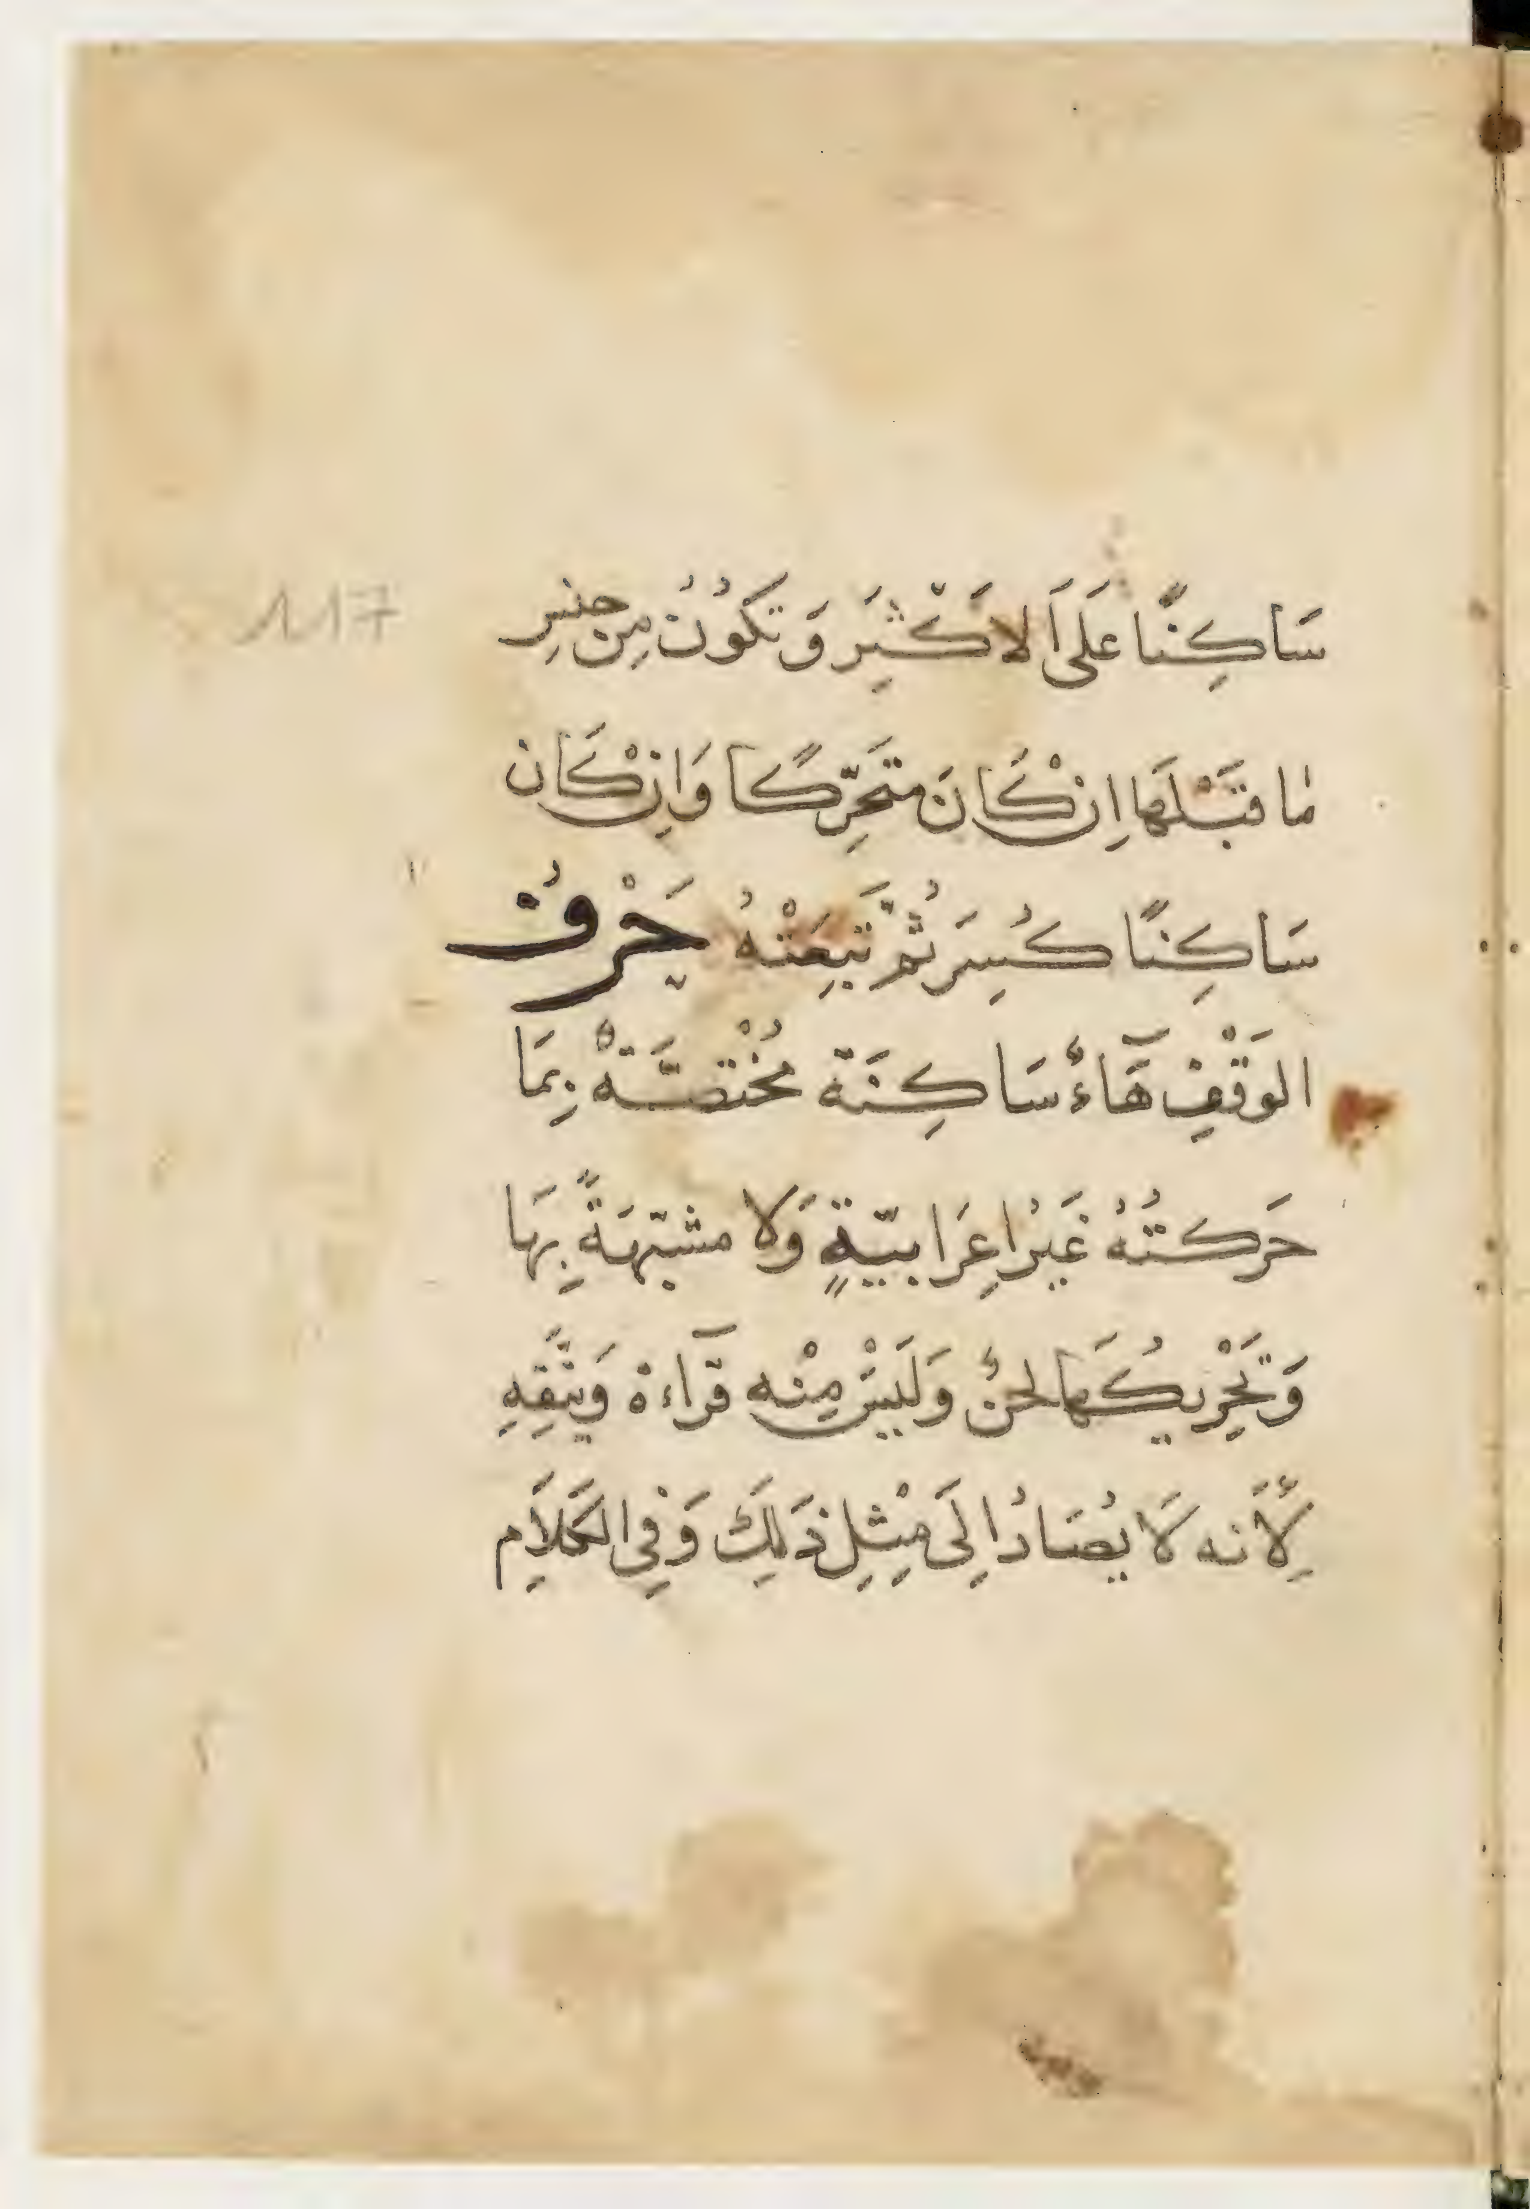 سَاكِنًا عَلَى اَلاَكْثَرِ وَتَكُوْنُ مِن جنسِ 117
مَا قَبْلَهَا اِنْ كَانَ متَحَرِّكًا وَاِنْ كَان
سَاكِنًا كُسِرَ ثُمَّ تَبِعَتْهُ حَرْفُ
الوَقْفِ هَآءٌ سَاكِنَة مُخْتصَّةٌ بِمَا
حَرَكتُهُ غَيْرُ اِعْرَابيّةٍ وَلاَ مشبّهَةً بِهَا
وَتَحْرِيكُهَا لحنٌ وَلَيْسَ مِنْه قرآءة وَيَتَّقِهِ
لِأَنَّه لَا يُصَارُ اِلَى مِثْلِ ذَلِكَ وَفِى الكَلَامِ